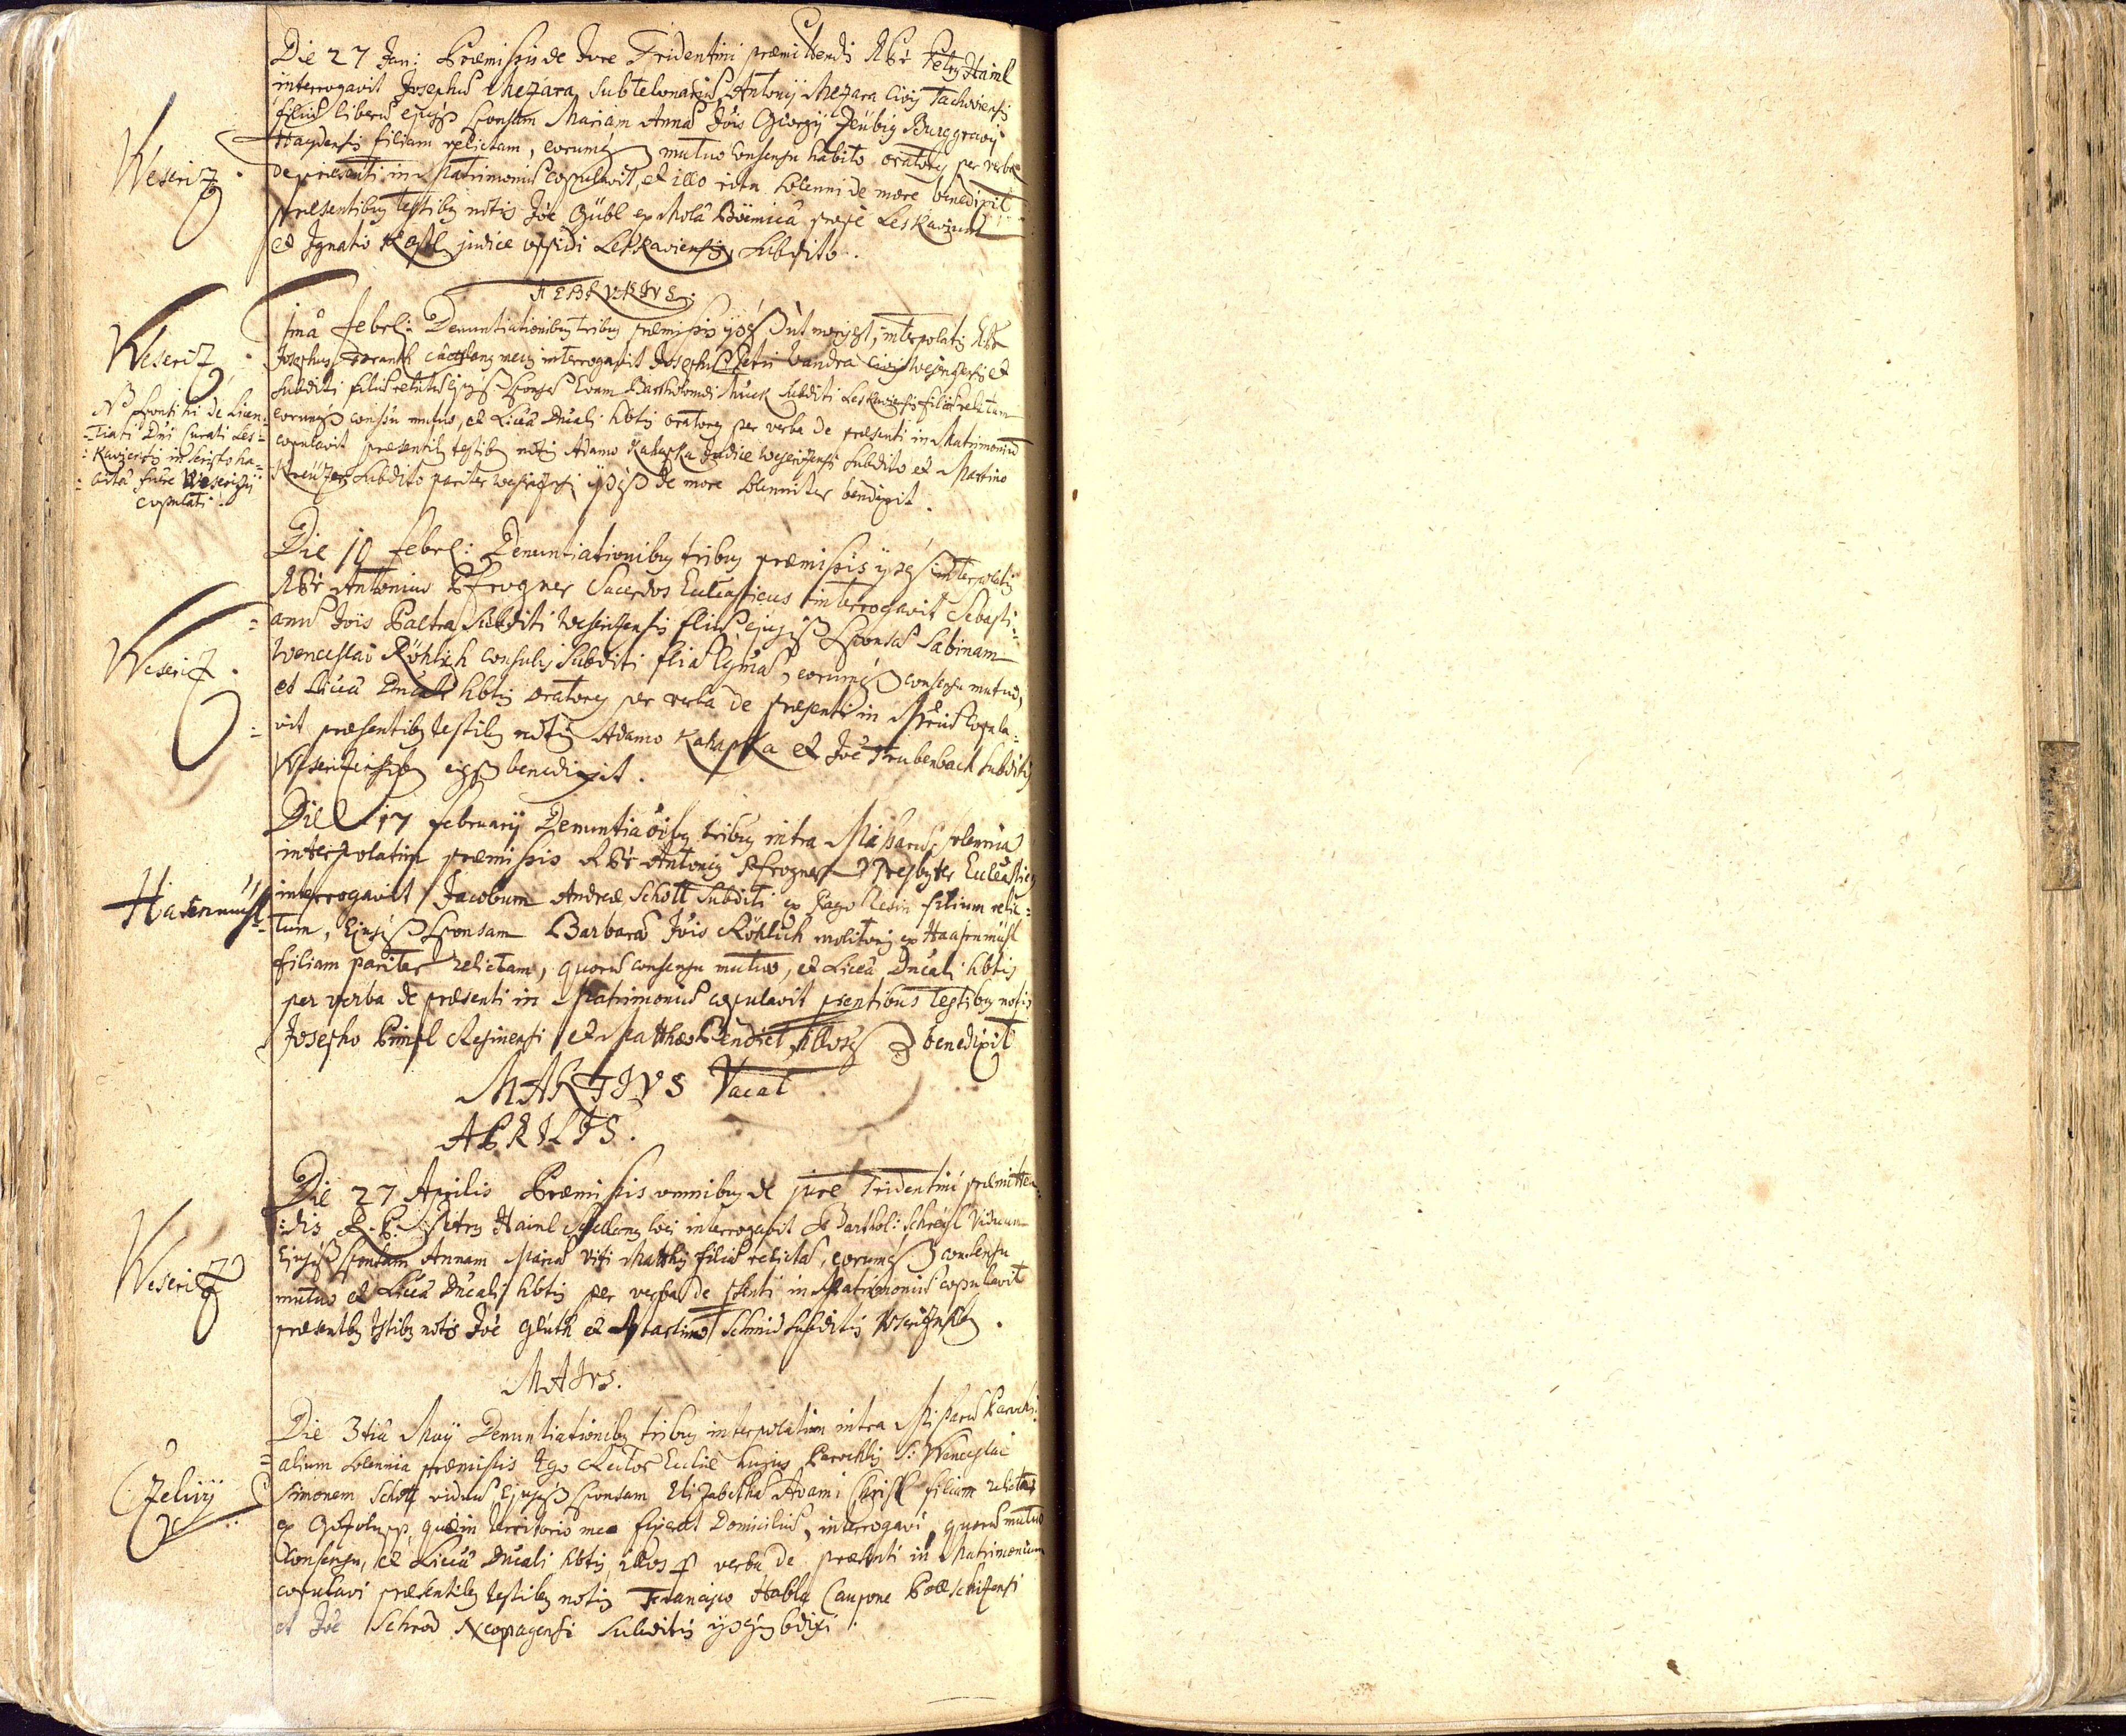 Die 27 Jan: Præmissis de Jure Tridentini præmittendis RP Petrus Hainl
interrogavit Josephus Mezara, Subtelonarius Antonij Mezara Civis Tachoviensis
filius liberus ejusq sponsam Mariam Annã Jõis Georgij Zeübig Burggravij
Haydensis filiam relictam, eorumq mutuo consensu habito oratores per verba
de præsenti in Matrimoniũ copulavit, et illo ritu solenni de more benedixit
præsentibus testibus notis Jõe Gübl ex Mola Böemica prope Leskavium
et Ignatio judice oppidi Leskaviensis Subdito.
Weseriz.
FEBRVARIVS.
Weseriz.
1mã Febr: Denuntiationibus tribus præmissis ijsq ut moris est, interpolatis RP
Josephus capellanus meus interrogavit Josephũ Petri Vandra Civis Weseriz et
Subditi filiũ relictũ ejusq sponsã Evam Bartholomæi Muck Subditi Leskaviensis filiã relictam
eorumq consensu mutuo, et Licẽa Ducali hbtis oratores per verba de præsenti in Matrimoniũ
copulavit præsentibus testibus notis Adamo Kahapka Judice Weserizensi Subdito et Martino
Kreüzer Subdito pariter Weserizensi ijsq de more solenniter benedixit.
NB Sponsi hi de Licen-
tiati Dñi Curati Les-
kaviensis in scripto ha-
bita fuere Weserizij
copulati.
Die 10 Febr: Denuntiationibus tribus præmissis ijsq interpolatis
RP Antonius Pfrogner Sacerdos Ecclesiasticus interrogavit Sebasti-
anũ Jõis Paltra Subditi Weserizensis filiũ, ejusq Sponsã Sabinam
Wenceslai Röhlich Consulis Subditi filiã lgmã, eorumq consensu mutuo,
et Licẽa Ducali hbtis oratores per verba de præsenti in Mrẽũ copula-
vit præsentibus testibus notis Adamo Kahapka et Jõe Trubenbach Subditis
Weserizensibus eisq benedixit.
Weseriz.
Die 17 February Denuntiaõibus tribus intra Missarũ solennia
interpolatim præmissis RP Antonius Pfrogner Presbyter Ecclesiasticus
interrogavit Jacobum Andreæ Schott Subditi ex Pago Resin filium relic-
tum, Ejusq Sponsam Barbarã Jõis Röhlich molitoris ex Haasenmühl
filiam pariter relictam, quorũ consensu mutuo, et Licẽa Ducali hbtis
per verba de præsenti in Matrimoniũ copulavit præntibus testibus notis
Josepho Resinensi et Matthæo Bendict, illosq benedixit
Hasenmühl
MARTIVS Vacat
APRILIS.
Die 27 Aprilis Præmissis omnibus de jure Tridentini præmitten-
dis R.P. Petrus Hainl loci interrogavit Barthol: Schreyl Viduum
Ejusq sponsam Annam Mariã Viti Matthis filiã relictã, eorumq consensu
mutuo et Licẽa Ducali hbtis per verba de psenti in Matrimoniũ copulavit
præsentibus testibus notis Jõe Gluth et Martino Schmid Subditis Weserizensibus.
Weseriz
MAIVS.
Die 3tia Maij Denuntiationibus tribus interpolatim intra Missarũ Parochi-
alium solennia præmissis Ego Rector Ecclæ hujus Parochlis S: Wenceslai
Simonem Schott viduũ Ejusq Sponsam Elizabethã Adami Christl filiam relictam
ex quæ in territorio meo fixerat Domiciliũ, interrogavi, quorũ mutuo
Consensu, et Licẽa Ducali hbtis, illos p verba de præsenti in Matrimonium
copulavi præsentibus testibus notis Francisco Habla Caupone
et Jõe Schrod Neopagensi Subditis ijsq bdixi.
Czelivij